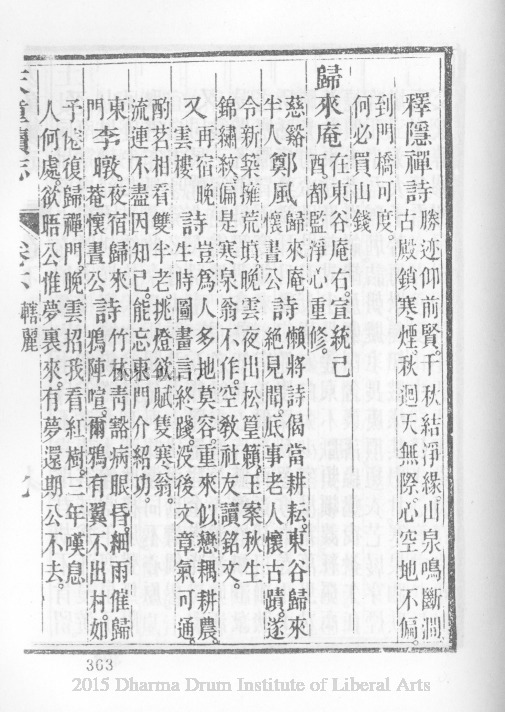 釋隱禪詩 勝迹仰前賢。千秋結淨緣。山泉鳴斷澗。
古殿鎖寒煙。秋迴天無際。心空地不偏。
到門橋可度。
何必買山錢
歸來庵 在東谷庵右。宣統己
酉。都監淨心重修。
慈谿 鄭風 歸來庵 詩 懶將詩偈當耕耘。東谷歸來
半人 懷晝公 絕見聞。底事老人懷古蹟。遂
令新築擁荒墳。晚雲夜出松篁籟。王案秋生
錦繡紋。偏是寒泉翁不作。空教社友讀銘文。
又 再宿晚 詩 豈爲人多地莫容。重來似戀耦耕農。
雲樓 生時圖畫言終踐。沒後文章氣可通。
酌茗相看雙半老。挑燈欲賦隻寒翁。
流連不盡因知己。能忘東門介紹功。
東 李暾。夜宿歸來 詩 竹林靑豁病眼昏。細雨催歸
門 菴懷晝公 鴉陣喧。爾鴉有翼不出村。如
予佗復歸禪門。晚雲招我看紅樹。三年嘆息
人何處。欲晤公惟夢裏來。有夢還期公不去。
天童續志 卷下 轄麗 九
363
2015 Dharma Drum Institute of Liberal Arts